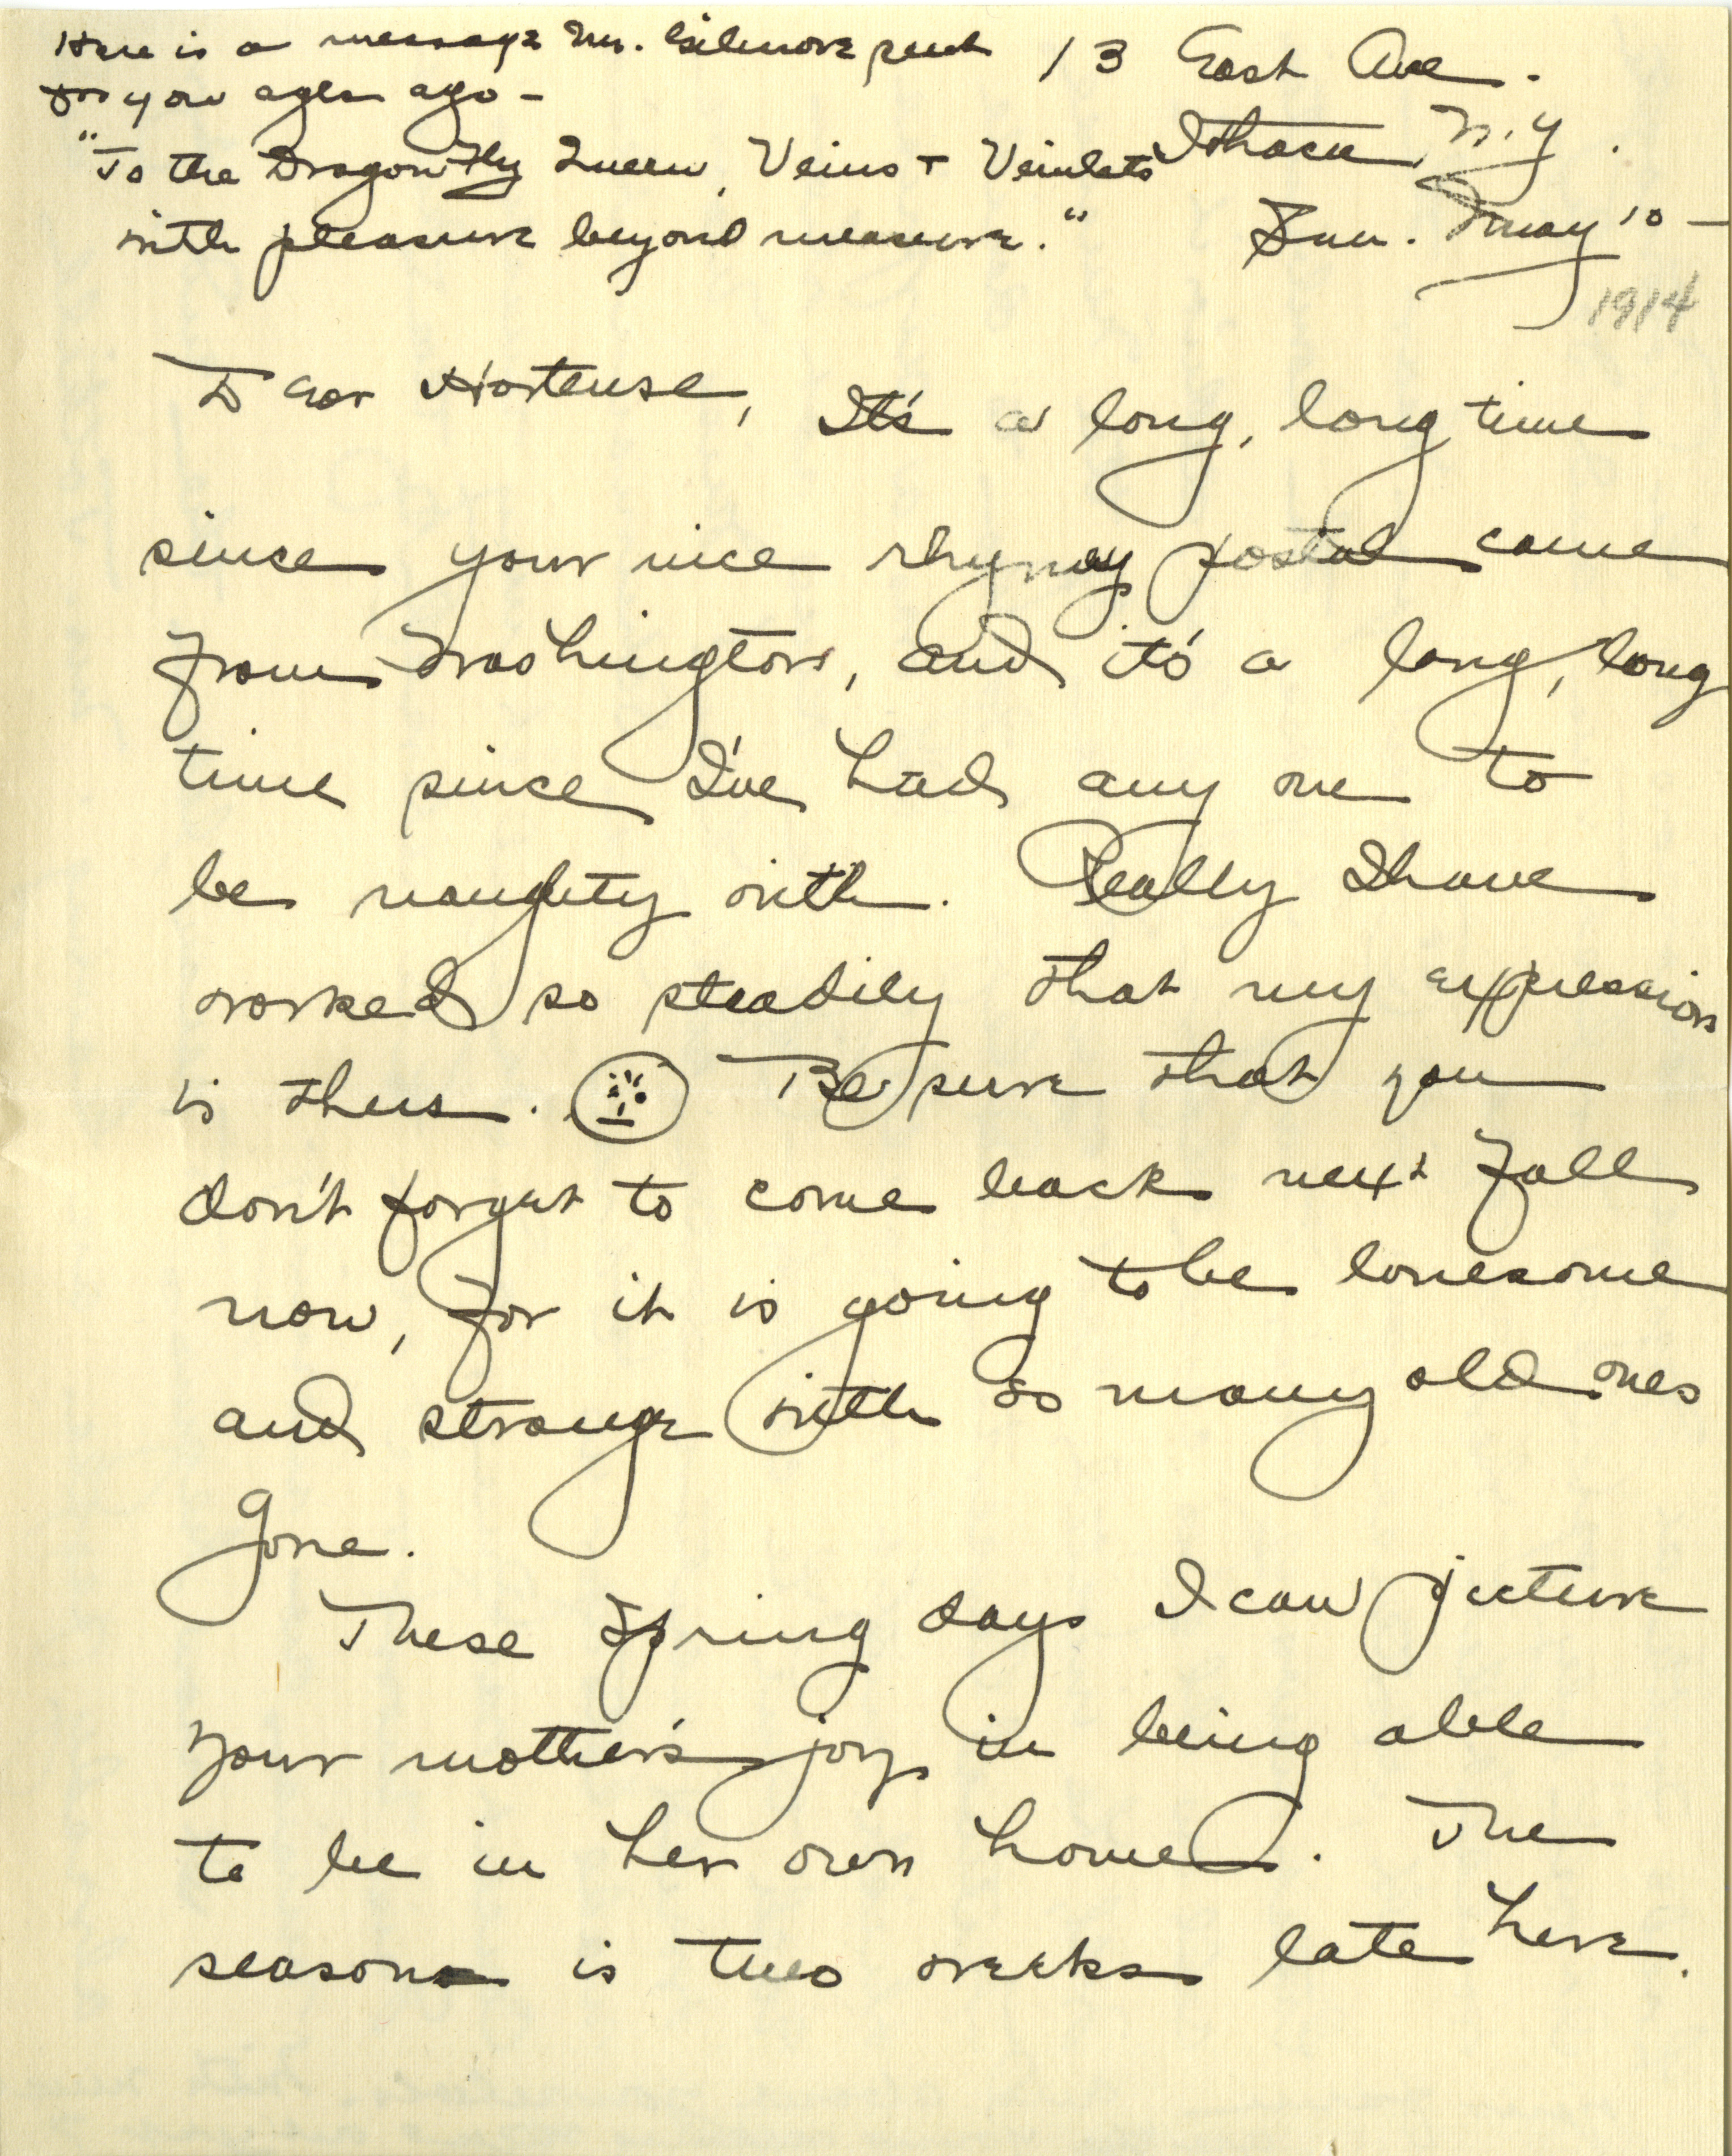 Here is a message Mr. Gilmore sent
for you ages ago -
"To the Dragon Fly Queen, Veins + Veinlets
with pleasure beyond measure."
13 East Ave.
Ithaca, N.Y.
Sun. May 10 -
1914
Dear Hortense, It's a long, long time
since your nice rhymey postal came
from Washington, and it's a long, long
time since I've had any one to
be naughty with. Really I have
worked so steadily that my expression
is thus. Be sure that you
don't forget to come back next Fall
now, for it is going to be lonesome
and strange with so many old ones
gone.
These Spring days I can picture
your mother's joy in being able
to be in her own home. The
season is two weeks late here.